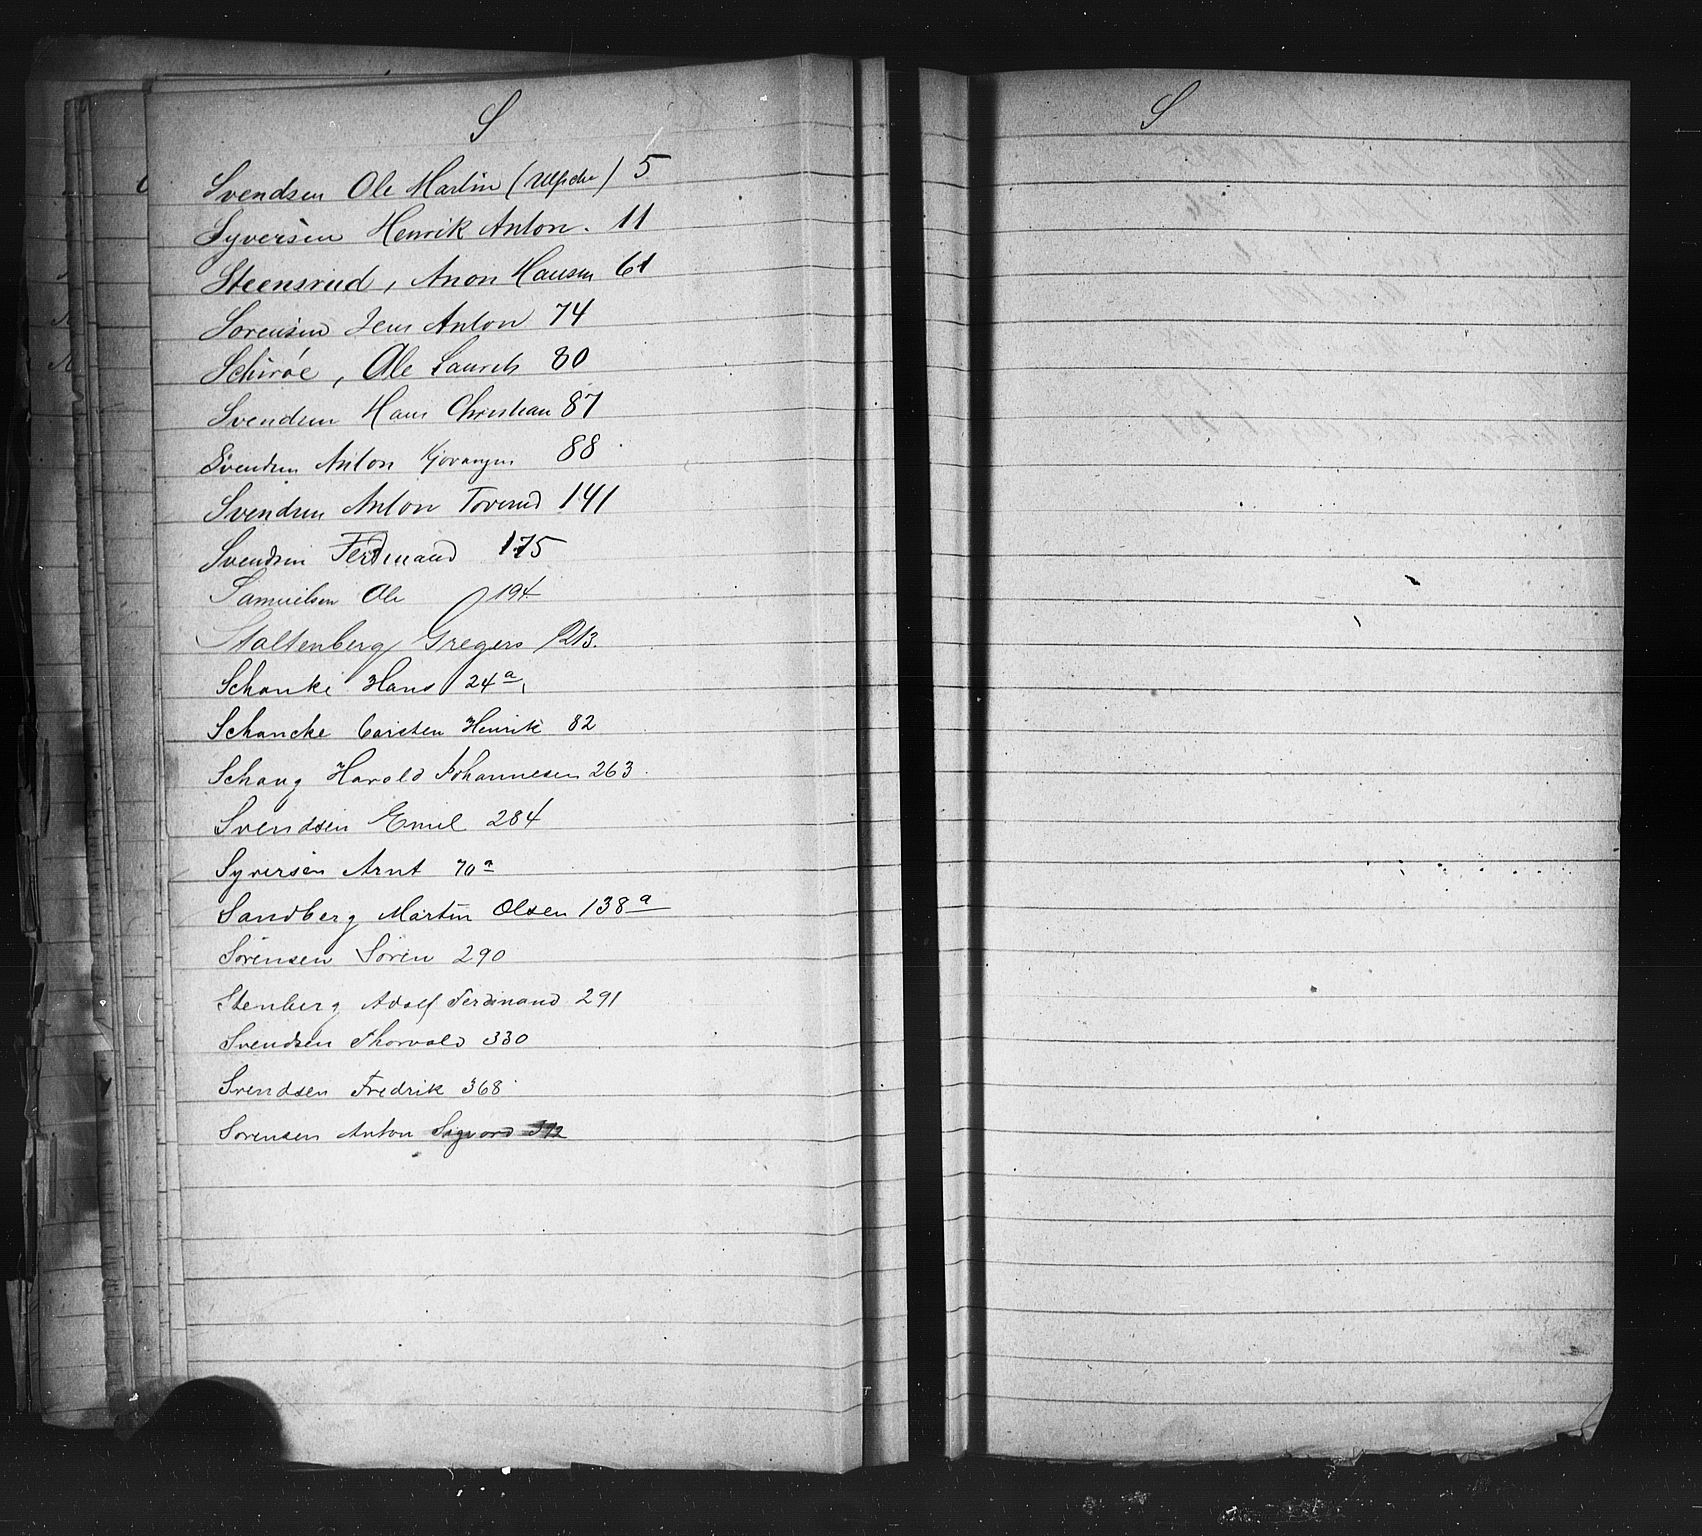 S
Svendsen Ole Martin ( ) 5
Syversen Henrik Anton. 11
Steensrud, Anon Hansen 61
Sorensen Jens Anton 74
Schirøe, Ole Laurits 80
Svendsen Hans Christian 87
Svendsen Anton 88
Svendsen Anton Toverud 141
Svendsen Ferdinand 175
Samuelsen Ole 194
Staltenberg Gregers 213.
Schanke Hans 24a
Schancke Carsten Henrik 82
Schaug Harald Johannesen 263.
Svendsen Emil 284
Syversen Arnt 70a
Sandberg Martin Olsen 138a
Sørensen Søren 290
Stenberg Adolf Ferdinand 291
Svendsen Thorvald 330
Svendsen Fredrik 368
Sorensen Anton Sigvard 372
S